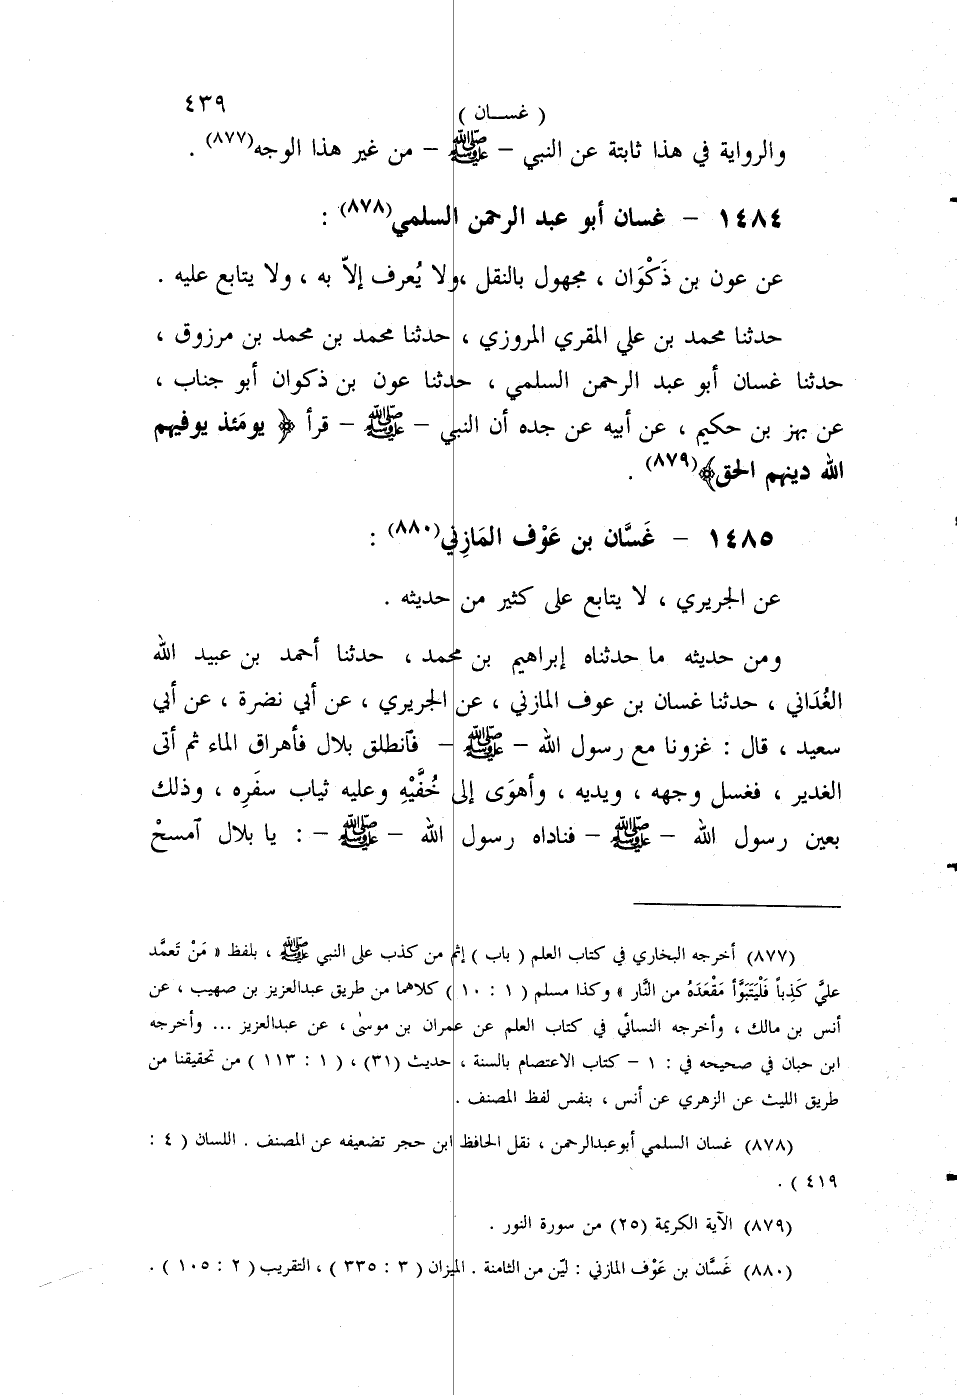 ( غســان )
٤٣٩
والرواية في هذا ثابتة عن النبي – ﷺ – من غير هذا الوجه(٨٧٧) .
١٤٨٤ – غسان أبو عبد الرحمن السلمي(٨٧٨) :
عن عون بن ذَكْوَان ، مجهول بالنقل ،ولا يُعرف إلاّ به ، ولا يتابع عليه .
حدثنا محمد بن علي المقري المروزي ، حدثنا محمد بن محمد بن مرزوق ،
حدثنا غسان أبو عبد الرحمن السلمي ، حدثنا عون بن ذكوان أبو جناب ،
عن بهز بن حكيم ، عن أبيه عن جده أن النبي – ﷺ – قرأ ﴿ يومَئذ يوفيهم
الله دينهم الحق﴾(٨٧٩) .
١٤٨٥ – غَسَّان بن عَوْف المَازِني(٨٨٠) :
عن الجريري ، لا يتابع على كثير من حديثه .
ومن حديثه ما حدثناه إبراهيم بن محمد ، حدثنا أحمد بن عبيد الله
الغُدَاني ، حدثنا غسان بن عوف المازني ، عن الجريري ، عن أبي نضرة ، عن أبي
سعيد ، قال : غزونا مع رسول الله – ﷺ – فٱنطلق بلال فأهراق الماء ثم أتى
الغدير ، فغسل وجهه ، ويديه ، وأهوَى إلى خُفَّيْهِ وعليه ثياب سفَرِه ، وذلك
بعين رسول الله – ﷺ – فناداه رسول الله – ﷺ – : يا بلال ٱمسحْ
(٨٧٧) أخرجه البخاري في كتاب العلم ( باب ) إثم من كذب على النبي ﷺ ، بلفظ « مَنْ تَعمَّد
عليَّ كَذِباً فَلْيَتَبَوَّأ مَقْعَدَهُ من النَّار » وكذا مسلم ( ١ : ١٠ ) كلاهما من طريق عبدالعزيز بن صهيب ، عن
أنس بن مالك ، وأخرجه النسائي في كتاب العلم عن عمران بن موسى ، عن عبدالعزيز ... وأخرجه
ابن حبان في صحيحه في : ١ – كتاب الاعتصام بالسنة ، حديث (٣١) ، ( ١ : ١١٣ ) من تحقيقنا من
طريق الليث عن الزهري عن أنس ، بنفس لفظ المصنف .
(٨٧٨) غسان السلمي أبوعبدالرحمن ، نقل الحافظ ابن حجر تضعيفه عن المصنف . اللسان ( ٤ :
٤١٩ ) .
(٨٧٩) الآية الكريمة (٢٥) من سورة النور .
(٨٨٠) غَسَّان بن عَوْف المازني : ليّن من الثامنة . الميزان ( ٣ : ٣٣٥ ) ، التقريب ( ٢ : ١٠٥ ) .